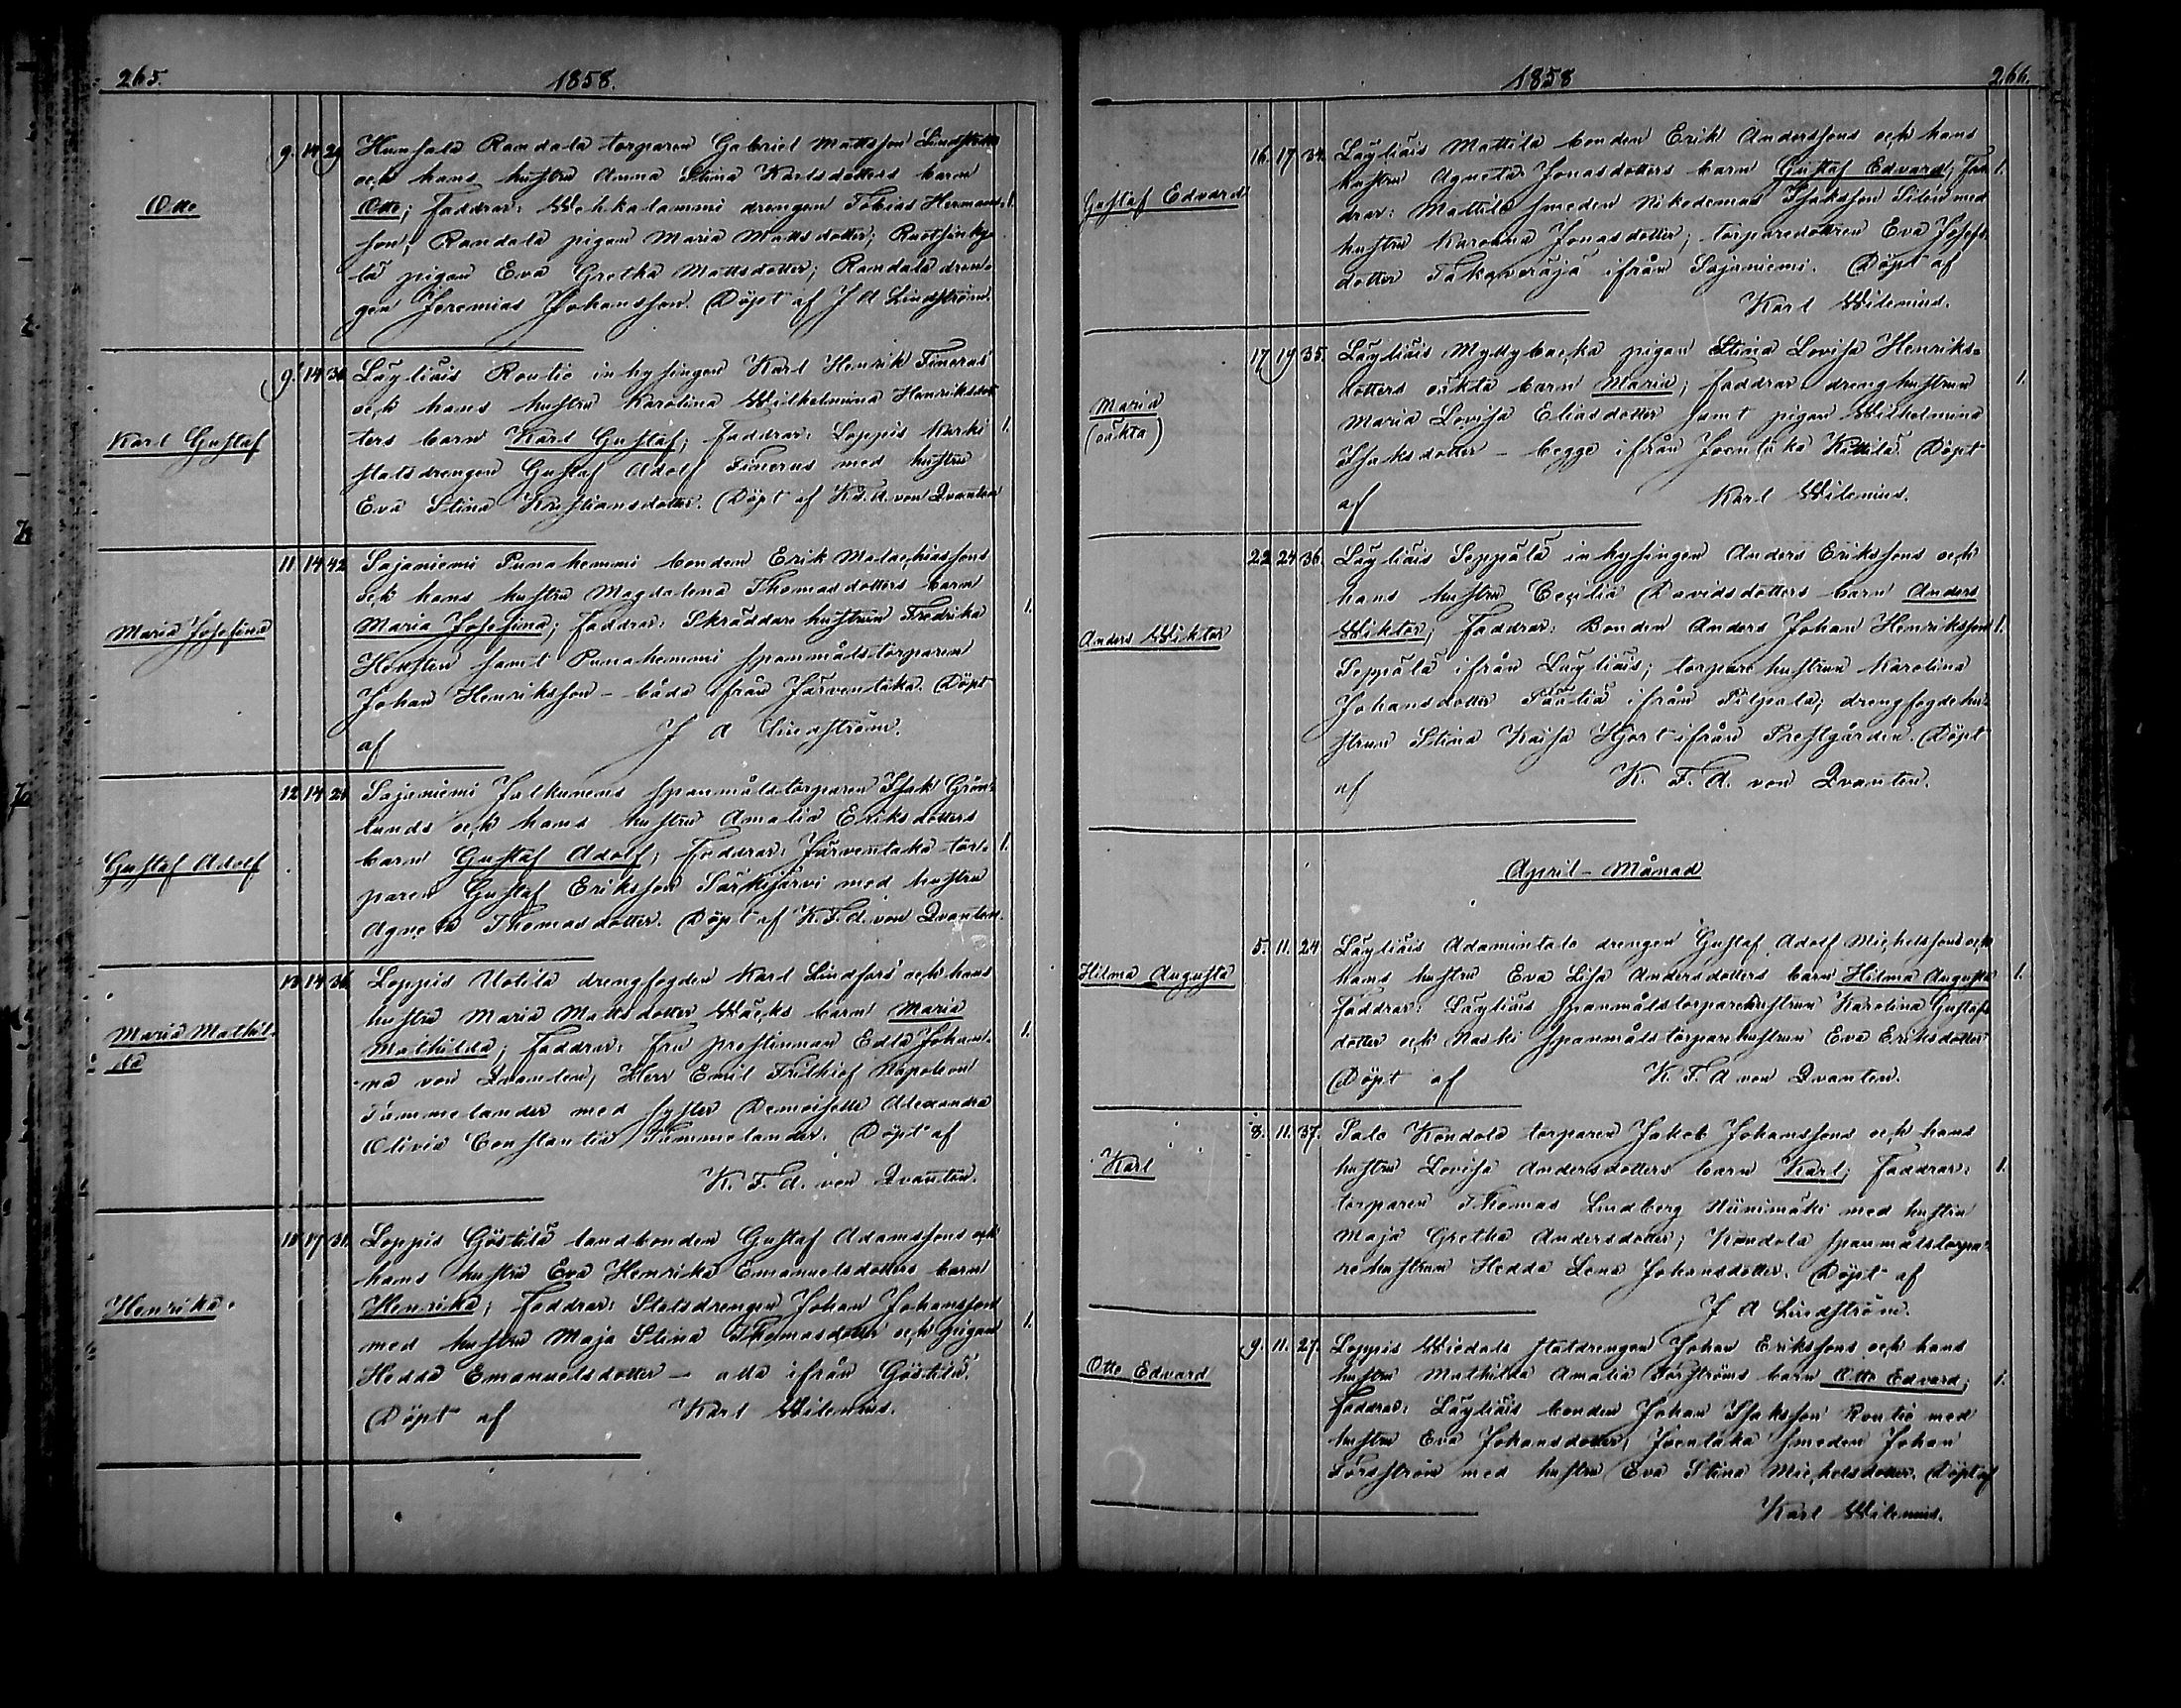 265.
1858.
Otto
9. 14 29 Hunsala Randala torparen Gabriel Mattsson Lindstedts
och hans hustru Anna Stina Karlsdotters barn
Otto; faddrar: Wehkalammi drengen Tobias Hermans-
son; Randala pigan Maria Mattsdotter; Ruotsinky-
lä pigan Eva Gretha Mattsdotter; Randala dren-
gen Jeremias Johansson. Döpt af J A Lindström.
1.
Karl Gustaf
9. 14 30 Läyliäis Routio inhysingen Karl Henrik Finerus
och hans hustru Karolina Wilhelmina Henriksdot-
ters barn Karl Gustaf; faddrar: Loppis Kerki
statsdrengen Gustaf Adolf Finerus med hustru
Eva Stina Kristiansdotter. Döpt af K.F.A. von Qvanten
1.
Maria Josefina
11. 14 42 Sajaniemi Punahemmi bonden Erik Malachiassons
och hans hustru Magdalena Thomasdotters barn
Maria Josefina; faddrar: Skräddare hustrun Fredrika
samt Punahemmi spanmålstorparen
Johan Henriksson – båda ifrån Järventaka. Döpt
af J A Lindström.
1.
Gustaf Adolf
12 14 21 Sajaniemi Jalkunens spanmålstorparen Isak Grön-
lunds och hans hustru Amalia Eriksdotters
barn Gustaf Adolf; faddrar: Järventaka tor-
paren Gustaf Eriksson Särkijärvi med hustru
Agneta Thomasdotter. Döpt af K.F.A. von Qvanten.
1.
Maria Mathil-
da
14 36 Loppis Uotila drengfogden Karl Lindfors' och hans
hustru Maria Mattsdotter Wäcks barn Maria
Mathilda; faddrar: Fru prostinnan Edla Johan-
na von Qvanten; Herr Emil Frithiof Napoleon
Tammelander med syster Demoiselle Alexandra
Olivia Constantia Tammelander. Döpt af
K. F. A. von Qvanten.
1.
Henrika.
17 31. Loppis Göstilä landbonden Gustaf Adamssons och
hans hustru Eva Henrika Emanuelsdotters barn
Henrika; faddrar: Statsdrengen Johan Johansson
med hustru Maja Stina Thomasdotter och pigan
Hedda Emanuelsdotter – alla ifrån Göstilä.
Döpt af Karl Wilenius.
1.
1858
266.
Gustaf Edvard
16. 17. 34. Läyliäis Mattila bonden Erik Anderssons och hans
hustru Agneta Jonasdotters barn Gustaf Edvard; Fad-
drar: Mattila smeden Nikodemus Isaksson Silén med
hustru Karolina Jonasdotter; torparedottren Eva Josefs-
dotter Takaveräjä ifrån Sajaniemi. Döpt af
Karl Wilenius.
1.
Maria
(oäkta)
17 19 35. Läyliäis Myllybacka pigan Stina Lovisa Henriks-
dotters oäkta barn Maria; faddrar: drenghustrun
Maria Lovisa Eliasdotter samt pigan Wilhelmina
Isaksdotter – begge ifrån Joentaka Kittilä. Döpt
af Karl Wilenius.
1.
Anders Wiktor
22 24 36. Läyliäis Seppälä inhysingen Anders Erikssons och
hans hustru Cecilia Davidsdotters barn Anders
Wiktor; faddrar: Bonden Anders Johan Henriksson
Seppälä ifrån Läyliäis; torpare hustrun Karolina
Johansdotter ifrån Pilpala; drengfogdehu-
strun Stina Kaisa Hjort ifrån Prestgården. Döpt
af K. F. A. von Qvanten.
1.
April – Månad
Hilma Augusta
5. 11. 24 Läyliäis Adamintalo drengen Gustaf Adolf Michelssons och
hans hustru Eva Lisa Andersdotters barn Hilma Augusta
faddrar: Läyliäis spanmålstorparehustrun Karolina Gustafs-
dotter och Naski spanmålstorparehustrun Eva Eriksdotter
Döpt af K. F. A von Qvanten.
1.
Karl
8. 11. 37. Salo Kondola torparen Jakob Johanssons och hans
hustru Lovisa Andersdotters barn Karl; faddrar:
torparen Thomas Lindberg Niinimäki med hustru
Maja Gretha Andersdotter; Kondola spanmålstorpa-
re hustrun Hedda Lena Johansdotter. Döpt af
J A Lindström.
1.
Otto Edvard
9. 11. 27. Loppis Wiedala statdrengen Johan Erikssons och hans
hustru Mathilda Amalia Forströms barn Otto Edvard;
Faddrar: Läyliäis bonden Johan Isaksson Routio med
hustru Eva Johansdotter; Joentaka smeden Johan
Forsström med hustru Eva Stina Michelsdotter. Döpt af
Karl Wilenius.
1.